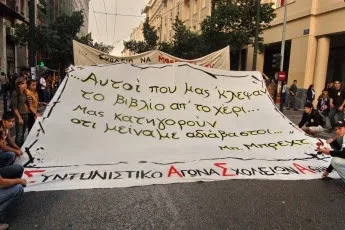 ΣΧΟΛΕΙΑ ΝΑ
"Αυτοί που μας 'κλεψαν
το βιβλίο απ' το χέρι...
Μας κατηγορούν
οτι μείναμε αδιάβαστοι..."
Μπ. Μπρεχτ
Συντονιστικο Αγωνα Σχολειων